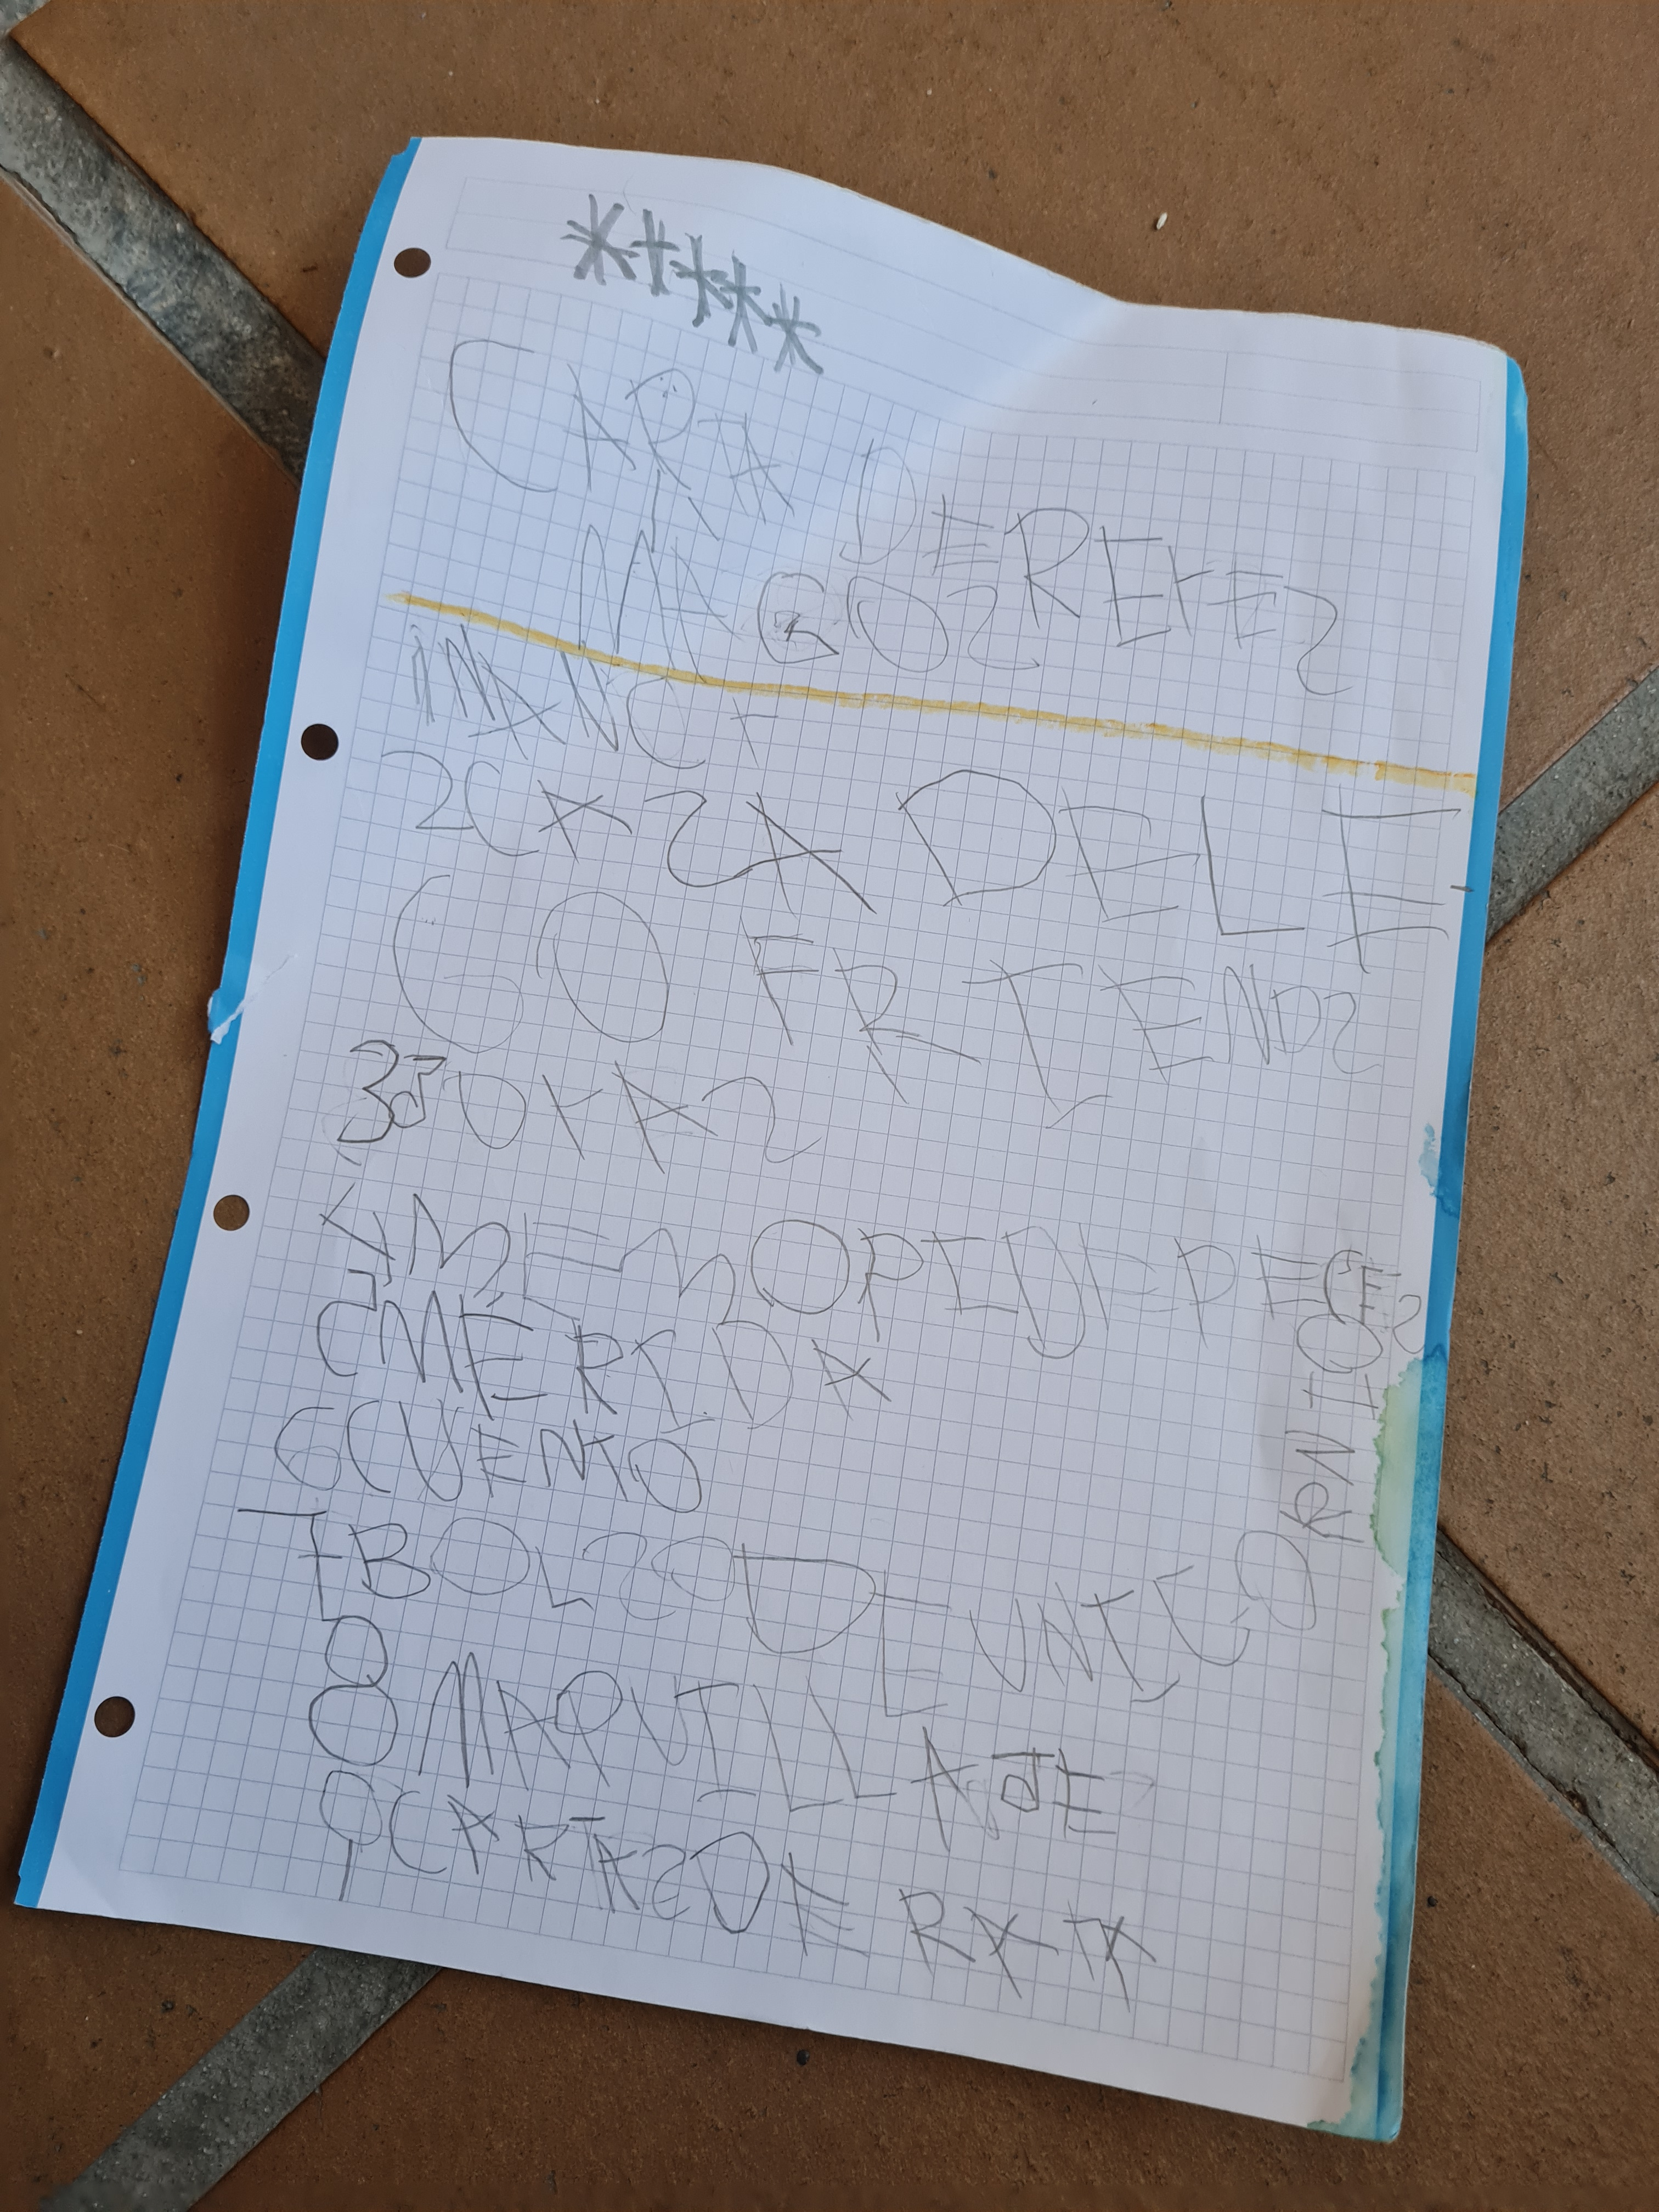 *****
CARA DE REYES
MAGOS
1 MANOY
2 CASA DE LE
GO FRIENDS
3 JOYAS
4 MEMORI DE PECES
5 MERIDA
6 CUENTO
7 BOLSO DE UNICORNIO
8 MAQUILLAJE
9 CARTAS DE RATA